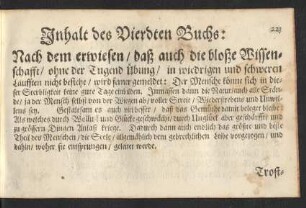 Inhalt des Vierdten Buchs:
Nach dem erwiesen / daß auch die bloße Wissen-
schafft / ohne der Tugend Übung / in wiedrigen und schweren
Läufften nicht bestehe / wird ferner gemeldet: Der Mensche könne sich in die-
ser Sterbligkeit keine gute Tage einbilden. Immassen dann die Natur auch alle Stän-
de / ja der Mensch selbst von der Jugend ab / voller Streit / Wiederstrebens und
Gestaltsam es auch
Als welches durch Wollust und Glücke geschwächt / durch Unglück aber geschärffet und
zu größern Dingen Anlaß kriege. Darnach dann auch endlich das größte und beste
Theil des Menschen / die Seele / allgemächlich dem gebrechlichen Leibe vorgezogen / und
dahin / woher sie entsprungen / gelanget werde.
Trost-